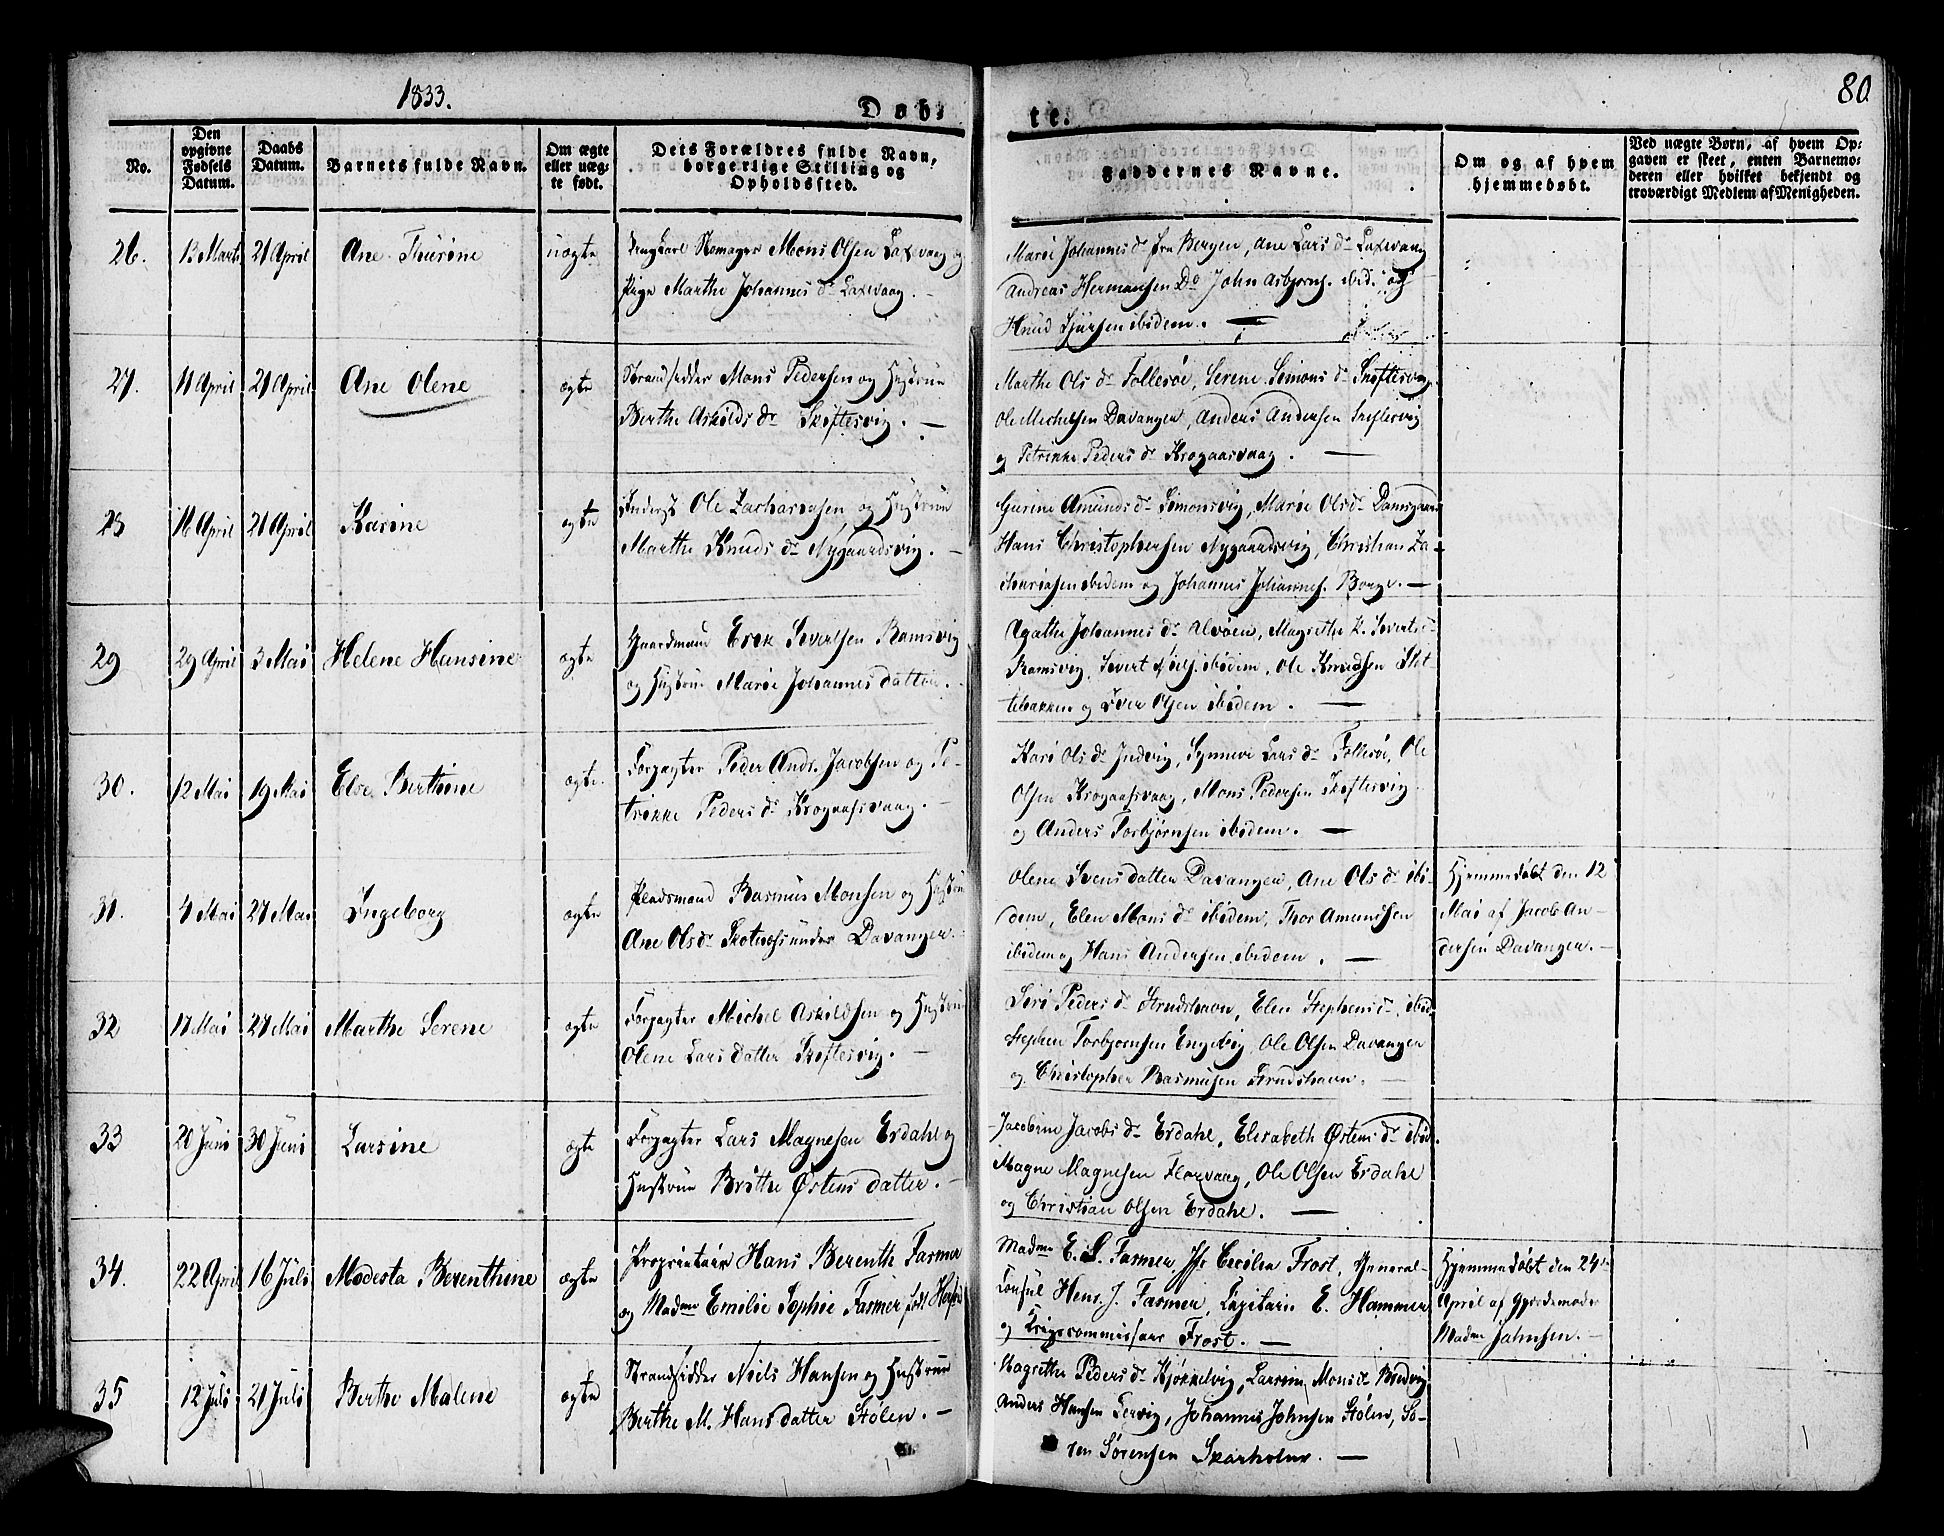 1833.
80
Døb-
te.
No.
Den opgivne Fødsels Datum.
Daabs Datum.
Barnets fulde Navn.
Om ægte eller uægte født.
Dets Forældres fulde Navn, borgerlige Stilling og Opholdssted.
Faddernes Navne.
Om og af hvem hjemmedøbt.
Ved uægte Børn, af hvem Opgaven er skeet, enten Barnemoderen eller hvilket bekjendt og troværdigt Medlem af Menigheden.
26.
13 Marts
21 April
Ane Thurine
uægte
Ungkarl Mons Olsen Laxevaag og
Pige Marthe Johannes dr Laxevaag. —
Marie Johannes dr fra Bergen, Ane Lars dr Laxevaag
Andreas Hermansen Do John Asbjørns. ibid. og
Knud Sjursen ibidem. —
27.
11 April
21 April
Ane Olene
ægte
Strandsidder Mons Pedersen og Hustrue
Berthe Askilds dr Skiftesvig. —
Marthe Ols dr Follesøe, Serene Simons dr Skiftesvig
Ole Michelsen Davanger, Anders Andersen Skiftesvig
og Petrikke Peders dr Krogaasvaag. —
28
16 April
21 April
Karine
ægte
Inderst Ole Zachariasen og Hustrue
Marthe Knuds dr Nygaardsvig. —
Gurine Amunds dr Simonsvig, Marie Olsdr Damsgaard
Hans Christophersen Nygaardsvig, Christian Za-
chariasen ibidem og Johannes Johannes. Borge. —
29
29 April
3 Mai
Helene Hansine
ægte
Gaardmand Erik Sivertsen Ramsvig
og Hustrue Marie Johannesdatter.
Agathe Johannes dr Alvøen, Magrethe Siverts
Ramsvig, Sivert ibidem, Ole Knudsen Slet-
tebakken og Iver Olsen ibidem. —
30.
12 Mai
19 Mai
Else Berthine
ægte.
Forpagter Peder Ands. Jacobsen og Pe-
trikke Peders dr Krogaasvaag. —
Kari Ols dr Indvig, Synneve Lars dr Follesøe, Ole
Olsen Krogaasvaag, Mons Pedersen Skiftesvig
og Anders Torbjørnsen ibidem. —
31.
4 Mai
27 Mai
Ingeborg
ægte
Pladsmand Rasmus Monsen og Hustrue
Ane Olsdr Skotnæs under Davanger. —
Olene Svensdatter Davanger, Ane Ols dr ibi-
dem, Elen Mons dr ibidem, Thor Amundsen
ibidem og Hans Andersen ibidem. —
Hjemmedøbt den 12
Mai af Jacob An-
dersen Davanger. —
32
17 Mai
27 Mai
Marthe Serene
ægte
Forpagter Michel Askildsen og Hustrue
Olene Larsdatter Skiftesvig. —
Siri Peders dr Strudshavn, Elen Stephens dr ibid.
Stephen Torbjørnsen Engevig, Ole Olsen Davanger
og Christopher Rasmusen Strudshavn. —
33
20 Juni
30 Juni
Larsine
ægte
Forpagter Lars Magnesen Erdahl og
Hustrue Brithe Østensdatter. —
Jacobine Jacobs dr Erdahl, Elisabeth Østens dr ibid.
Magne Magnesen Florvaag, Ole Olsen Erdahl
og Christian Olsen Erdahl. —
34.
22 April
16 Juli
Modesta Berenthine
ægte
Proprietair Hans Berenth Fasmer
og Madme Emilie Sophie Fasmer født
Madme E. S. Fasmer, Jfr Cecilia Frost, General-
Consul Henr. J. Fasmer, Capitain E. Hammer
og Krigscommissair Frost. —
Hjemmedøbt den 24de
April af Gjordemoder
Madme Jahnsen. —
35
12 Juli
21 Juli
Berthe Malene
ægte
Strandsidder Niels Hansen og Hustrue
Berthe M. Hansdatter Stølen. —
Magrethe Peders dr Kjøkkelvig, Larsine Mons dr Bredvig
Anders Hansen Lervig, Johannes Johnsen Stølen, Sø-
ren Sørensen Skarholm. —